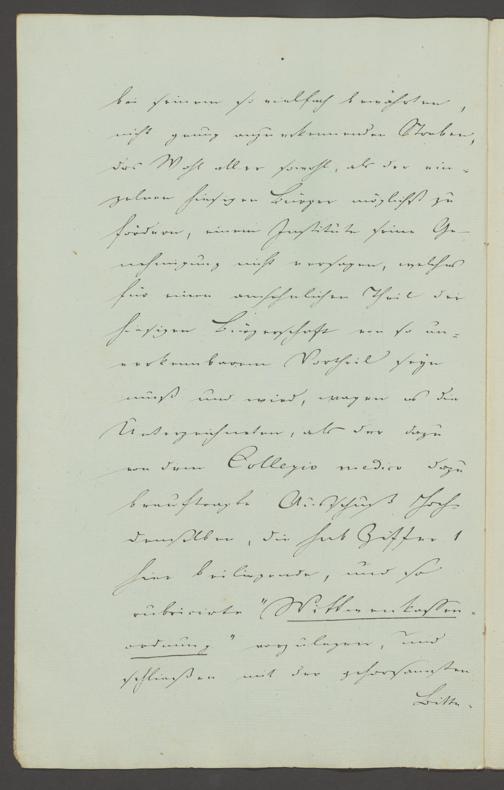 bei seinem so vielfach bewährten,
nicht genug anzuerkennenden Streben,
das Wohl aller sowohl, als der ein-
zelnen hiesigen Bürger möglichst zu
fördern, einem Institute seine Ge-
nehmigung nicht versagen, welches
für einen ansehnlichen Theil der
hiesigen Bürgerschaft von so un-
verkennbarem Vortheil seyn
muß und wird, wagen es die
Unterzeichneten, als der dazu
von dem Collegio medico dazu
beauftragte Ausschuß Hoch-
denselben, die sub Ziffer 1
hier beiliegende, und so
rubricirte "Wittwenkassen-
ordnung" vorzulegen, und
schließen mit der gehorsamsten
Bitte,